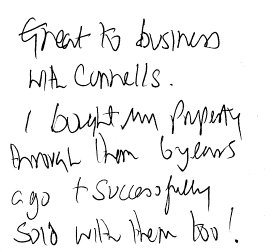 Great to business
with Connells.
I bought my Property
through them 6 years
ago + Successfully
Sold with them too!